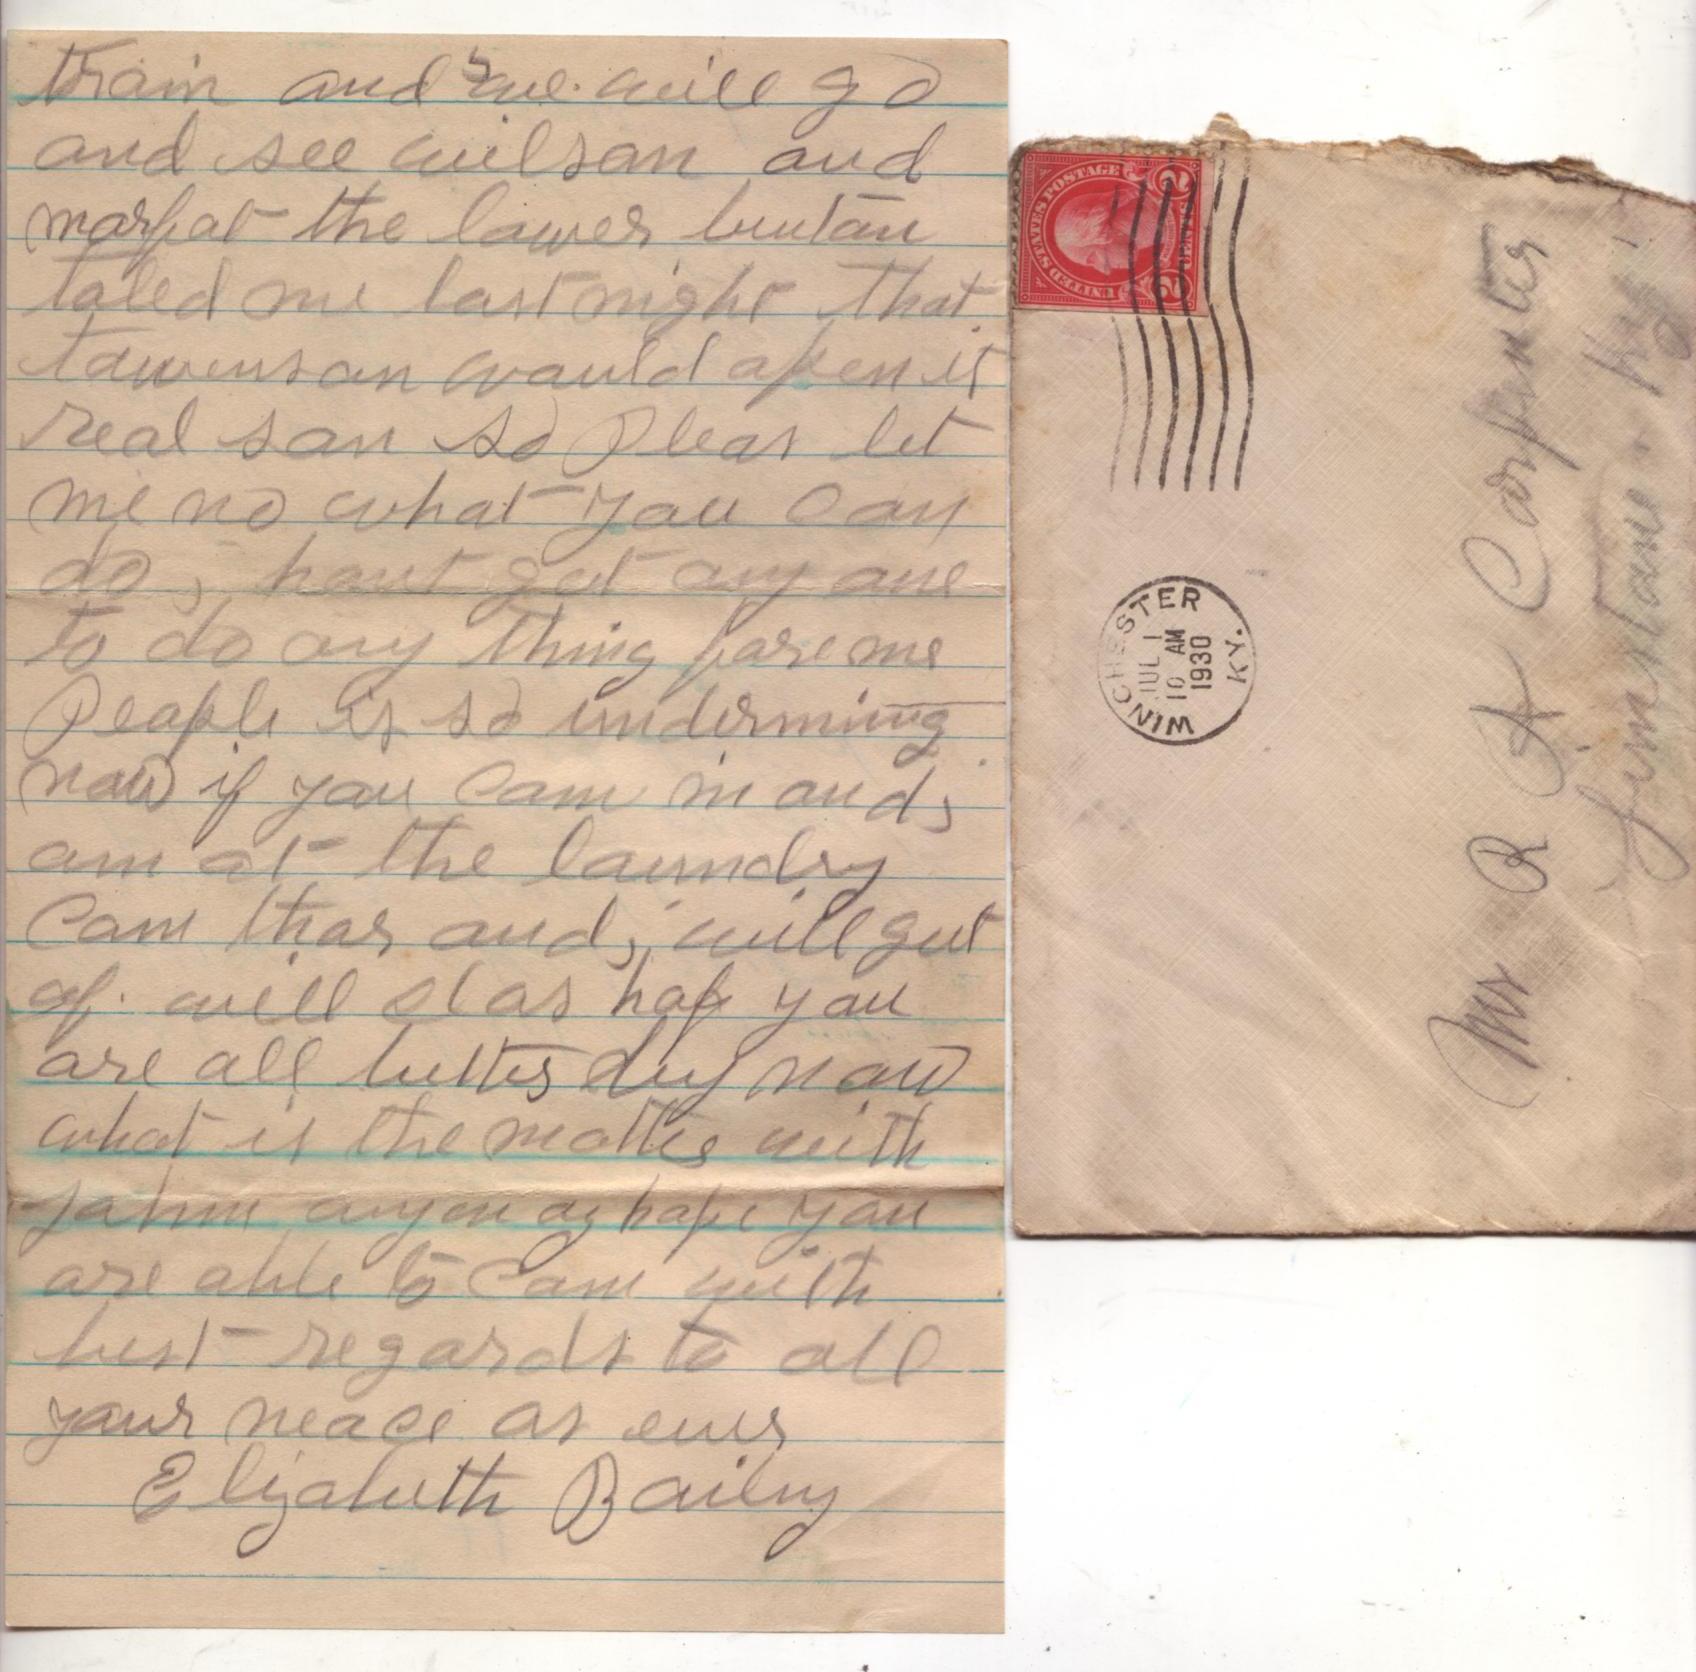 train and we will go
and see wilson and
marpat the lawerburtan
taled me last night that
tawenson would apen it
real san so Pleas let
me no what you can
do, I hant got any one
to do any thing fare me
People is so underming
now if you cam in and I
am at the laundry
cam thar and I will get
of. will clas hop you
are all better by now
what is the matter with
any hope you
are able to cam with
best regards to all
yaur neace as ever
Elizabeth Bailey
UNITED STATES POSTAGE
2 CENTS 2
WINCHESTER KY.
JUL 1
10 AM
1930
Mr R A Carpenter
Jimstown Ky